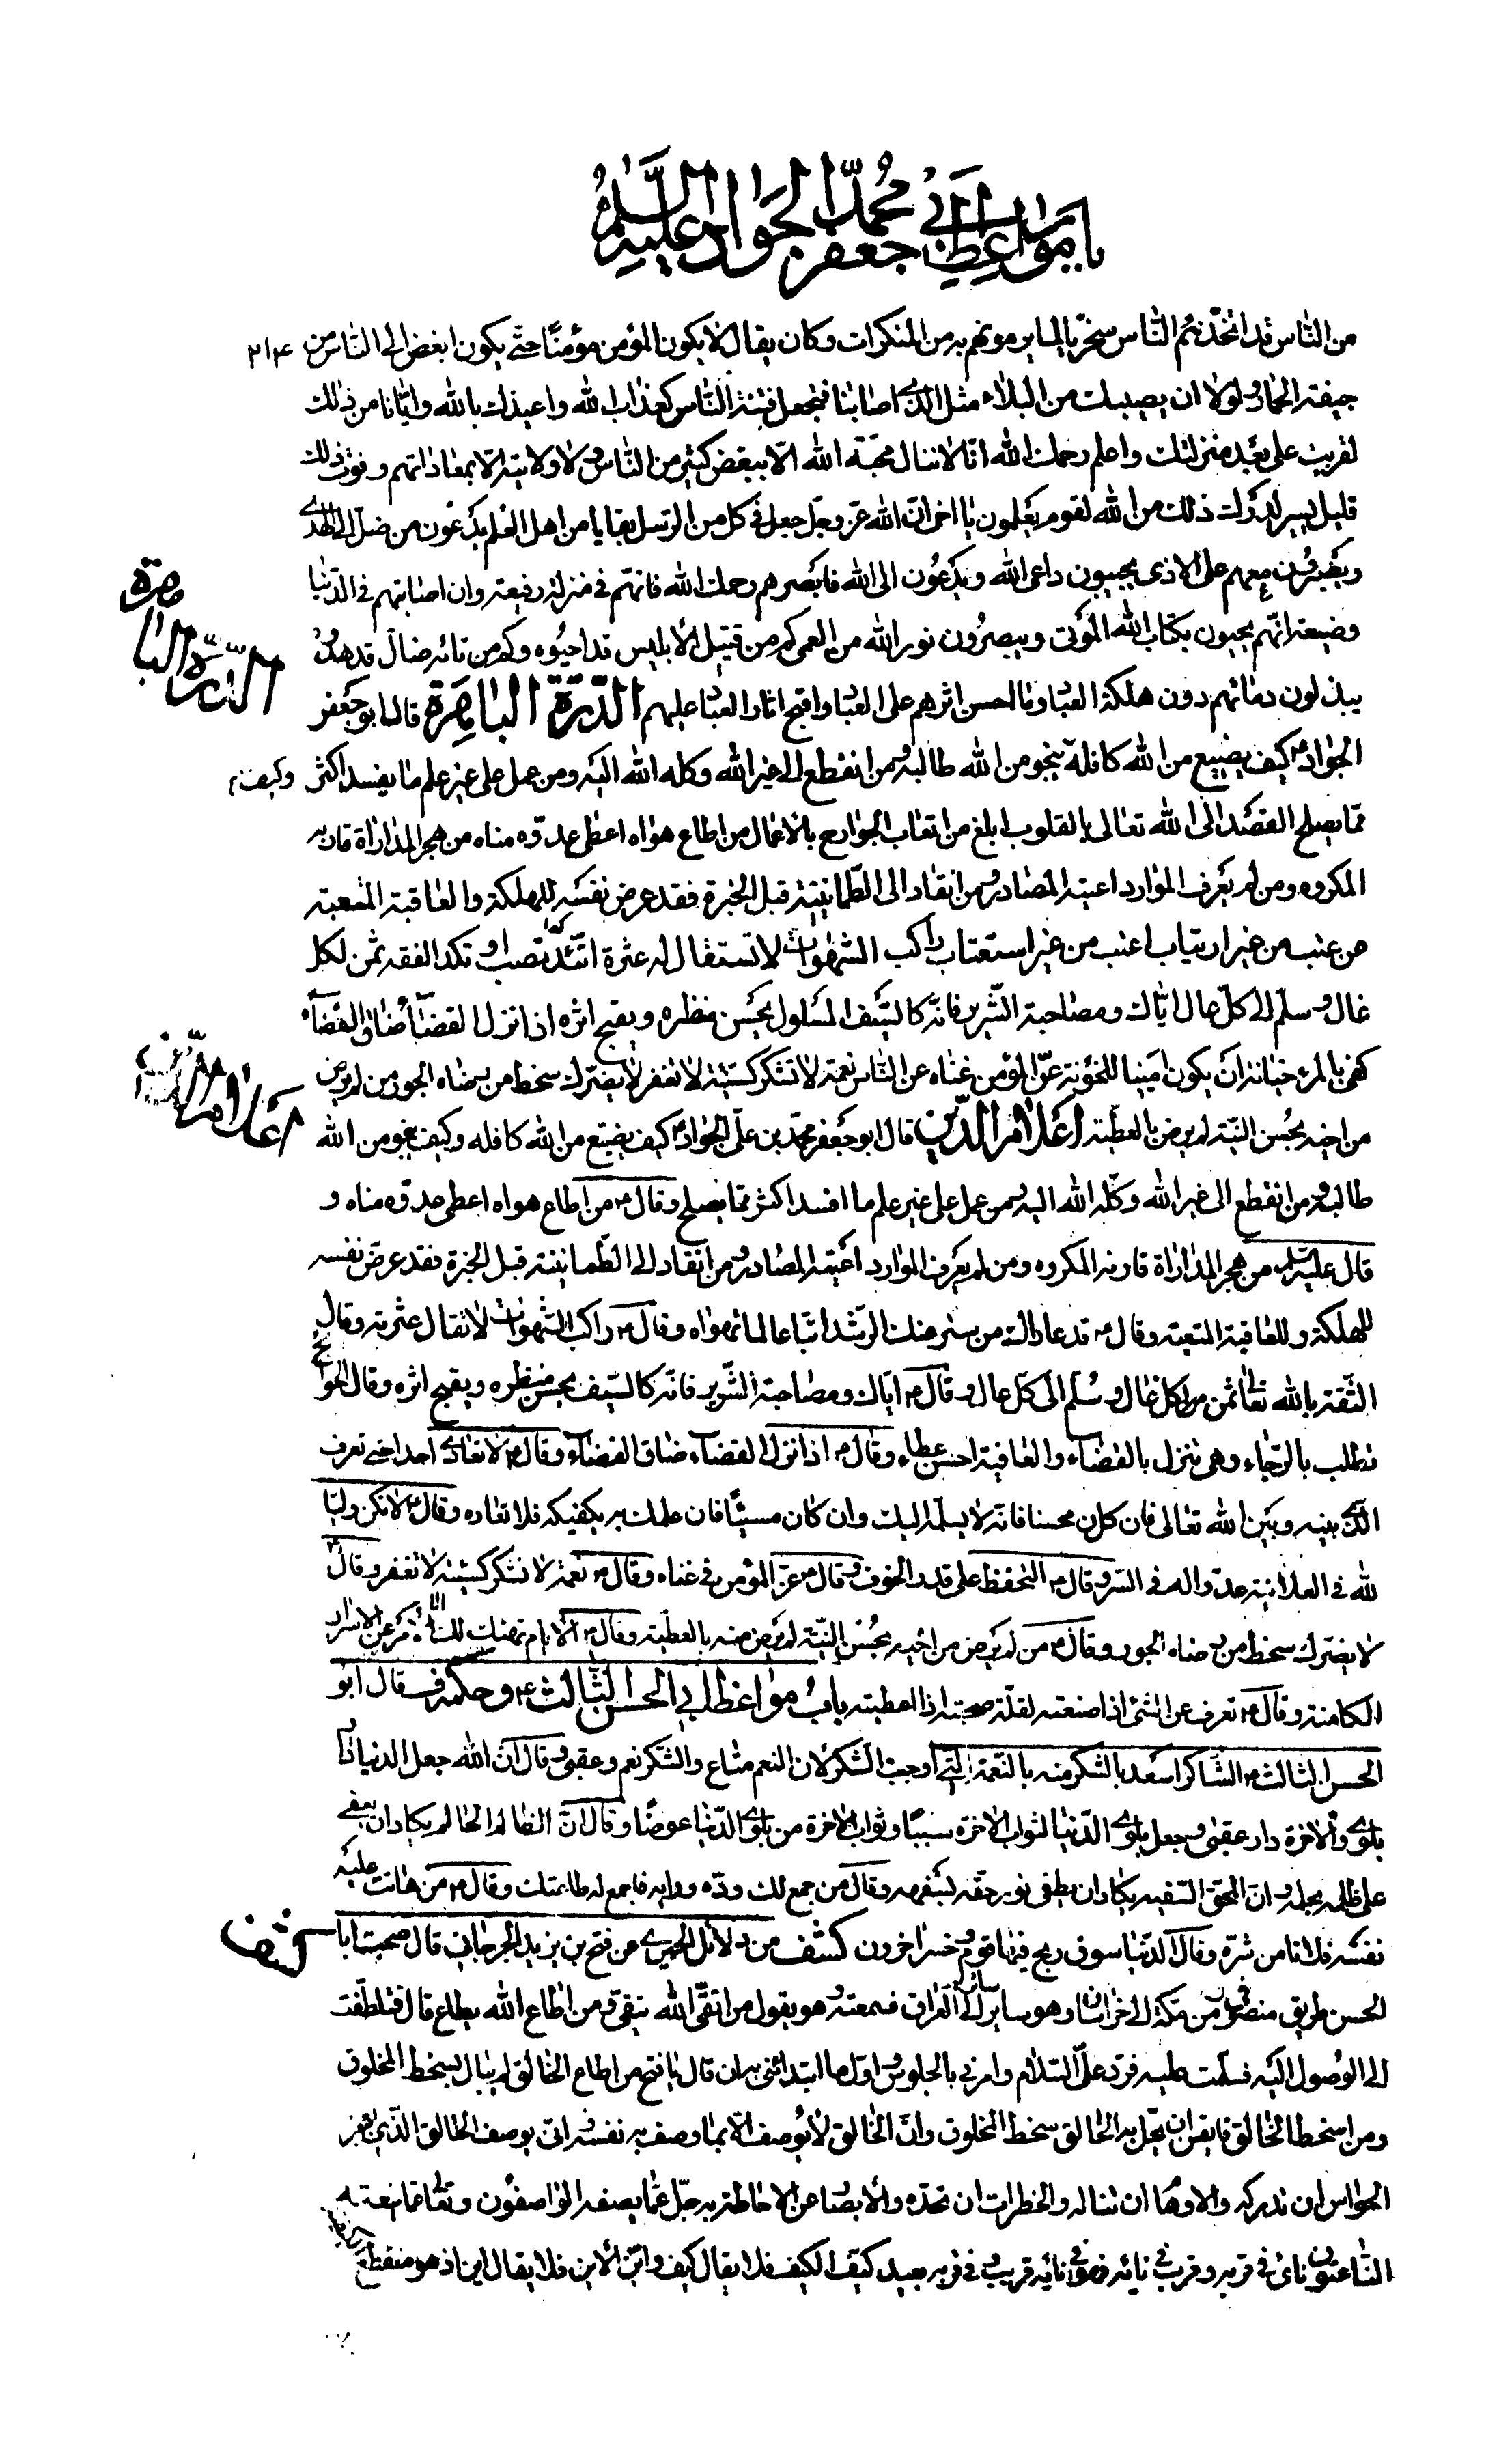 باب مواعظ ابي جعفر محمد الجواد عليه السلام
من النّاس قد اتّخذتهم النّاس سخريّا لما يرمونهم به من المنكرات وكان يقال لا يكون المؤمن مؤمنًا حتّى يكون ابغض الى النّاس من ٢١٤
جيفة الحمار ولولا ان يصيبك من البلاء مثل الذى اصابنا فتجعل فتنة النّاس كعذاب الله واعيذك بالله وايّانا من ذلك
لقربت على بعد منزلتك واعلم رحمك الله انّا لا ننال محبّة الله الّا ببغض كثير من النّاس ولا ولايته الّا بمعاداتهم وفوت ذلك
قليل يسير لدرك ذلك من الله لقوم يعلمون يا اخى انّ الله عزّ وجلّ جعل فى كل من الرسل بقايا من اهل العلم يدعون من ضلّ الى الهدى
ويصبرون معهم على الاذى يجيبون داعى الله ويدعون الى الله فابصرهم رحمك الله فانّهم فى منزلة رفيعة وان اصابتهم فى الدّنيا
وضيعة انّهم يحيون بكتاب الله الموتى ويبصرون نور الله من العمى كم من قتيل لابليس قد احيوه وكم من تائه ضالّ قد هدوه
يبذلون دمائهم دون هلكة العباد وما احسن اثرهم على العباد واقبح اثار العباد عليهم الدّرّة الباهرة قال ابو جعفر
الدرّة الباهرة
الجواد ع كيف يضيع من الله كافله ينجو من الله طالبه ومن انقطع الى غير الله وكله الله اليه ومن عمل على غير علم ما يفسد اكثر وكيف
ممّا يصلح القصد الى الله تعالى بالقلوب ابلغ من اتعاب الجوارح بالاعمال من اطاع هواه اعطى عدوّه مناه من هجر المداراة قاربه
المكروه ومن لم يعرف الموارد اعيته المصادر ومن انقاد الى الطّمانينة قبل الخبرة فقد عرض نفسه للهلكة والعاقبة المتعبة
من عتب من غير ارتياب اعتب من غير استعتاب راكب الشهوات لا تستقال له عثرة اتّئد تصب او تكد الثقة ثمن لكل
غال وسلّم الى كلّ عال ايّاك ومصاحبة الشّرير فانّه كالسّيف المسلول يحسن منظره ويقبح اثره اذا نزل القضاء ضاق الفضاء
كفى بالمرء خيانة ان يكون امينا للخونة عزّ المؤمن غناه عن النّاس نعمة لا تشكر كسيّئة لا تغفر لا يضرّك سخط من رضاه الجور من لم يرض
من اخيه بحسن النيّة لم يرض بالعطيّة اعلام الدّين قال ابو جعفر محمّد بن علىّ الجواد ع كيف يضيّع من الله كافله وكيف ينجو من الله
اعلام الدّين
طالبه ومن انقطع الى غير الله وكّله الله اليه ومن عمل على غير علم ما افسد اكثر ممّا يصلح وقال ع من اطاع هواه اعطى عدوّه مناه و
قال عليه السّلم من هجر المداراة قارنه المكروه ومن لم يعرف الموارد اعيته المصادر ومن انقاد الى الطّمانينة قبل الخبرة فقد عرّض نفسه
للهلكة وللعاقبة المتعبة وقال ع قد عاداك من ستر عنك الرّشد اتّباعا لما تهواه وقال ع راكب الشّهوات لا تقال عثرته وقال
الثّقة بالله تعالى ثمن لكل غال وسُلّم الى كلّ عال وقال ع ايّاك ومصاحبة الشّرير فانّه كالسّيف يحسن منظره ويقبح اثره وقال الحوائج
تطلب بالرّجاء وهى تنزل بالقضاء والعافية احسن عطاء وقال ع اذا نزل القضاء ضاق الفضاء وقال ع لا تعادى احدا حتى تعرف
الّذى بينه وبين الله تعالى فان كان محسنا فانّه لا يسلّمه اليك وان كان مسيئًا فان علمك به يكفيكه فلا تعاده وقال ع لا تكن وليّا
لله فى العلانية عدوّا له فى السّر وقال ع التحفظ على قدر الخوف وقال ع عزّ المؤمن فى غناه وقال ع نعمة لا تشكر كسيّئة لا تغفر وقال ع
لا يضرّك سخط من رضاه الجور وقال ع من لم يرض من اخيه بحسن النيّة لم يرض منه بالعطيّة وقال ع الايام تهتك لك عن الاسرار
الكامنة وقال ع تعرف عن الشئ اذا صنعته لقلّة صحبته اذا اعطيته باب مواعظ ابي الحسن الثّالث ع وحكمه ف قال ابو
الحسن الثالث ع الشّاكر اسعد بالشكر منه بالنّعمة الّتى اوجبت الشكر لان النعم متاع والشكر نعم وعقبى وقال انّ الله جعل الدنيا دار
بلوى والاخرة دار عقبى وجعل بلوى الدّنيا لثواب الاخرة سببًا وثواب الاخرة من بلوى الدّنيا عوضًا وقال انّ الظالم الحالم يكاد ان يعفى
على ظلمه بحلمه وانّ المحقّ السّفيه يكاد ان يطفى نور حقّه بسفهه وقال من جمع لك ودّه ورايه فاجمع له طاعتك وقال ع من هانت عليه
نفسه فلا تامن شرّه وقال الدّنيا سوق ربح فيها قوم وخسر اخرون كشف من دلائل الحميرى عن فتح بن يزيد الجرجانى قال صحبت ابا
كشف
الحسن طريق منصرفى من مكّة الى خراسان وهو ساير الى العراق فسمعته وهو يقول من اتّقى الله يتّقى ومن اطاع الله يطاع قال فتلطّفت
الى الوصول اليه فسلّمت عليه فردّ علىّ السّلام وامرنى بالجلوس واوّل ما ابتدائنى به ان قال يا فتح من اطاع الخالق لم يبال بسخط المخلوق
ومن اسخط الخالق فايقن ان يحلّ به الخالق سخط المخلوق وانّ الخالق لا يوصف الّا بما وصف به نفسه وانى يوصف الخالق الّذى يعجز
الحواس ان تدركه والاوهام ان تناله والخطرات ان تحدّه والابصار عن الاحاطة به جلّ عمّا يصفه الواصفون وتعالى عمّا ينعته
النّاعتون ناى فى قربه وقرب فى نائه فهو فى نائه قريب وفى قربه بعيد كيّف الكيف فلا يقال كيف وايّن الاين فلا يقال اين اذ هو منقطع